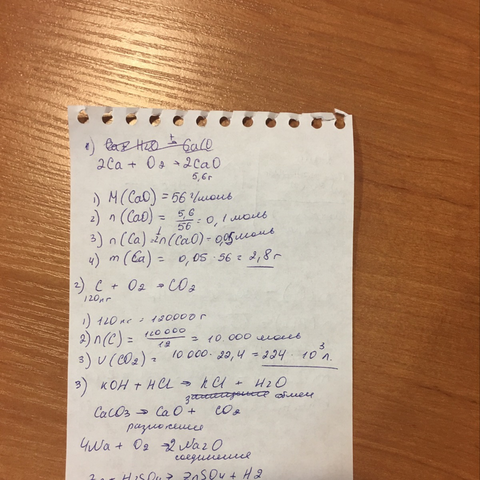 1) Ca + H2O →t CaO
2Ca + O2 → 2CaO
5,6г
1) M(CaO) = 56 г/моль
2) n(CaO) = 5,6/56 = 0,1 моль
3) n(Ca) = 1/2 n(CaO) = 0,05 моль
4) m(Ca) = 0,05 · 56 = 2,8 г
2) C + O2 → CO2
120кг
1) 120кг = 120000 г
2) n(C) = 120 000/12 = 10.000 моль
3) V(CO2) = 10.000 · 22,4 = 224 · 10³ л.
3) KOH + HCl → KCl + H2O
замещение обмен
CaCO3 → CaO + CO2
разложение
4Na + O2 → 2Na2O
соединение
H2SO4 → ZnSO4 + H2